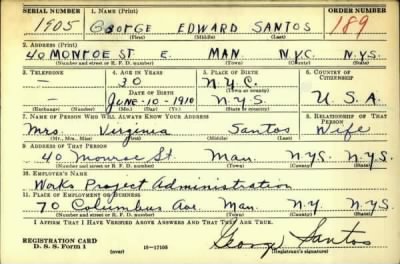 SERIAL NUMBER 1. NAME (Print) ORDER NUMBER
1905 GEORGE EDWARD SANTOS 189
(First) (Middle) (Last)
2. ADDRESS (Print)
40 MONROE ST E. MAN. N.Y.C. N.Y.S.
(Number and street or R. F. D. number) (Town) (County) (State)
3. TELEPHONE 4. AGE IN YEARS 5. PLACE OF BIRTH 6. COUNTRY OF CITIZENSHIP
— 30 N.Y.C.
DATE OF BIRTH (Town or county)
— JUNE-10-1910 N.Y.S. U.S.A.
(Exchange) (Number) (Mo.) (Day) (Yr.) (State or country)
7. NAME OF PERSON WHO WILL ALWAYS KNOW YOUR ADDRESS 8. RELATIONSHIP OF THAT PERSON
Mrs. Virginia Santos Wife
(Mr., Mrs., Miss) (First) (Middle) (Last)
9. ADDRESS OF THAT PERSON
40 Monroe St. Man. N.Y.S. N.Y.S.
(Number and street or R. F. D. number) (Town) (County) (State)
10. EMPLOYER'S NAME
Works Project Administration
11. PLACE OF EMPLOYMENT OR BUSINESS
70 Columbus Ave Man. N.Y. N.Y.S.
(Number and street or R. F. D. number) (Town) (County) (State)
I AFFIRM THAT I HAVE VERIFIED ABOVE ANSWERS AND THAT THEY ARE TRUE.
REGISTRATION CARD George Santos
D. S. S. Form 1 (over) 16—17105 (Registrant's signature)